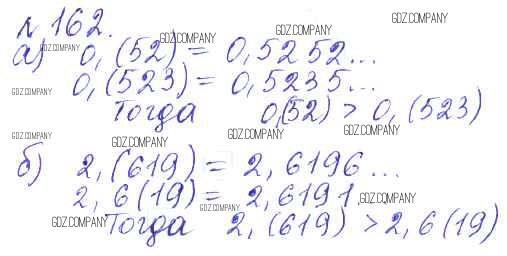 № 162.
а) 0,(52) = 0,5252...
0,(523) = 0,5235...
Тогда 0,(52) > 0,(523)
б) 2,(619) = 2,6196...
2,6(19) = 2,6191.
Тогда 2,(619) > 2,6(19)
GDZ.COMPANY
GDZ.COMPANY
GDZ.COMPANY
GDZ.COMPANY
GDZ.COMPANY
GDZ.COMPANY
GDZ.COMPANY
GDZ.COMPANY
GDZ.COMPANY
GDZ.COMPANY
GDZ.COMPANY
GDZ.COMPANY